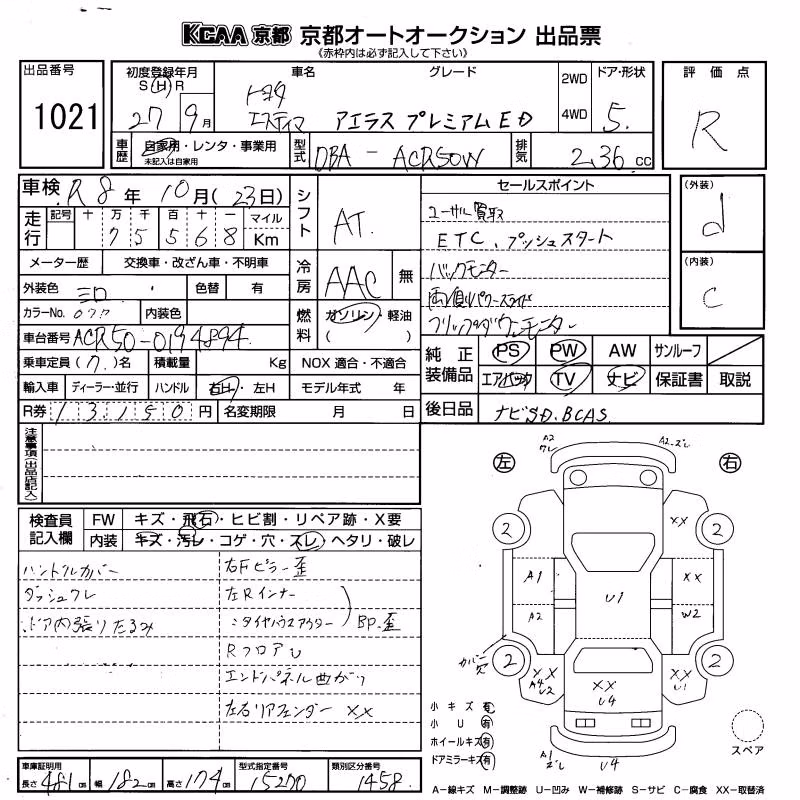 KCAA 京都 京都オートオークション 出品票
(赤枠内は必ず記入して下さい)
出品番号 1021
初度登録年月 S(H)R 27 9月
車名 トヨタ エスティマ
グレード アエラス プレミアムED
2WD 4WD
ドア・形状 5.
評価点 R
車歴 自家用・レンタ・事業用
未記入は自家用
型式 DBA-ACR50W
排気 2,36 cc
車検 R8年 10月(23日)
走行 記号 十 万 千 百 十 一 マイル
7 5 5 6 8 Km
シフト AT.
メーター歴 交換車・改ざん車・不明車
外装色 色替 有
カラーNo. 070 内装色
冷房 AAC 無
燃料 ガソリン・軽油
( )
車台番号 ACR50-0194894
乗車定員(7.)名 積載量 Kg NOX 適合・不適合
輸入車 ディーラー・並行 ハンドル 右H・左H モデル年式 年
R券 13150円 名変期限 月 日
セールスポイント
ユーザー買取
ETC、プッシュスタート
バックモニター
両側パワースライド
フリップダウンモニター
(外装) d
(内装) C
純正装備品 PS PW AW サンルーフ
エアバッグ TV ナビ 保証書 取説
後日品 ナビSD.BCAS.
注意事項(出品店記入)
検査員記入欄
FW キズ・飛石・ヒビ割・リペア跡・X要
内装 キズ・汚レ・コゲ・穴・スレ・ヘタリ・破レ
ハンドルカバー 右Fピラー歪
ダッシュワレ 左Rインナー
ドア内張りたるみ ミタイヤハウスアウター BP.歪
RフロアU
エンドパネル曲がり
左右リアフェンダー XX
左 右
A2 ワレ
A2-ズレ
2 2
XX
A1
XX
U1
A2
W2
カバー欠
2 2
XX
A4
U2
XX
U4
XX
U1
小キズ 有
小U 有
ホイールキズ 有
ドアミラーキズ 有
A1 ズレ
U4
スペア
車庫証明用 長さ481cm 幅182cm 高さ174cm
型式指定番号 15270
類別区分番号 1458
A-線キズ M-調整跡 U-凹み W-補修跡 S-サビ C-腐食 XX-取替済